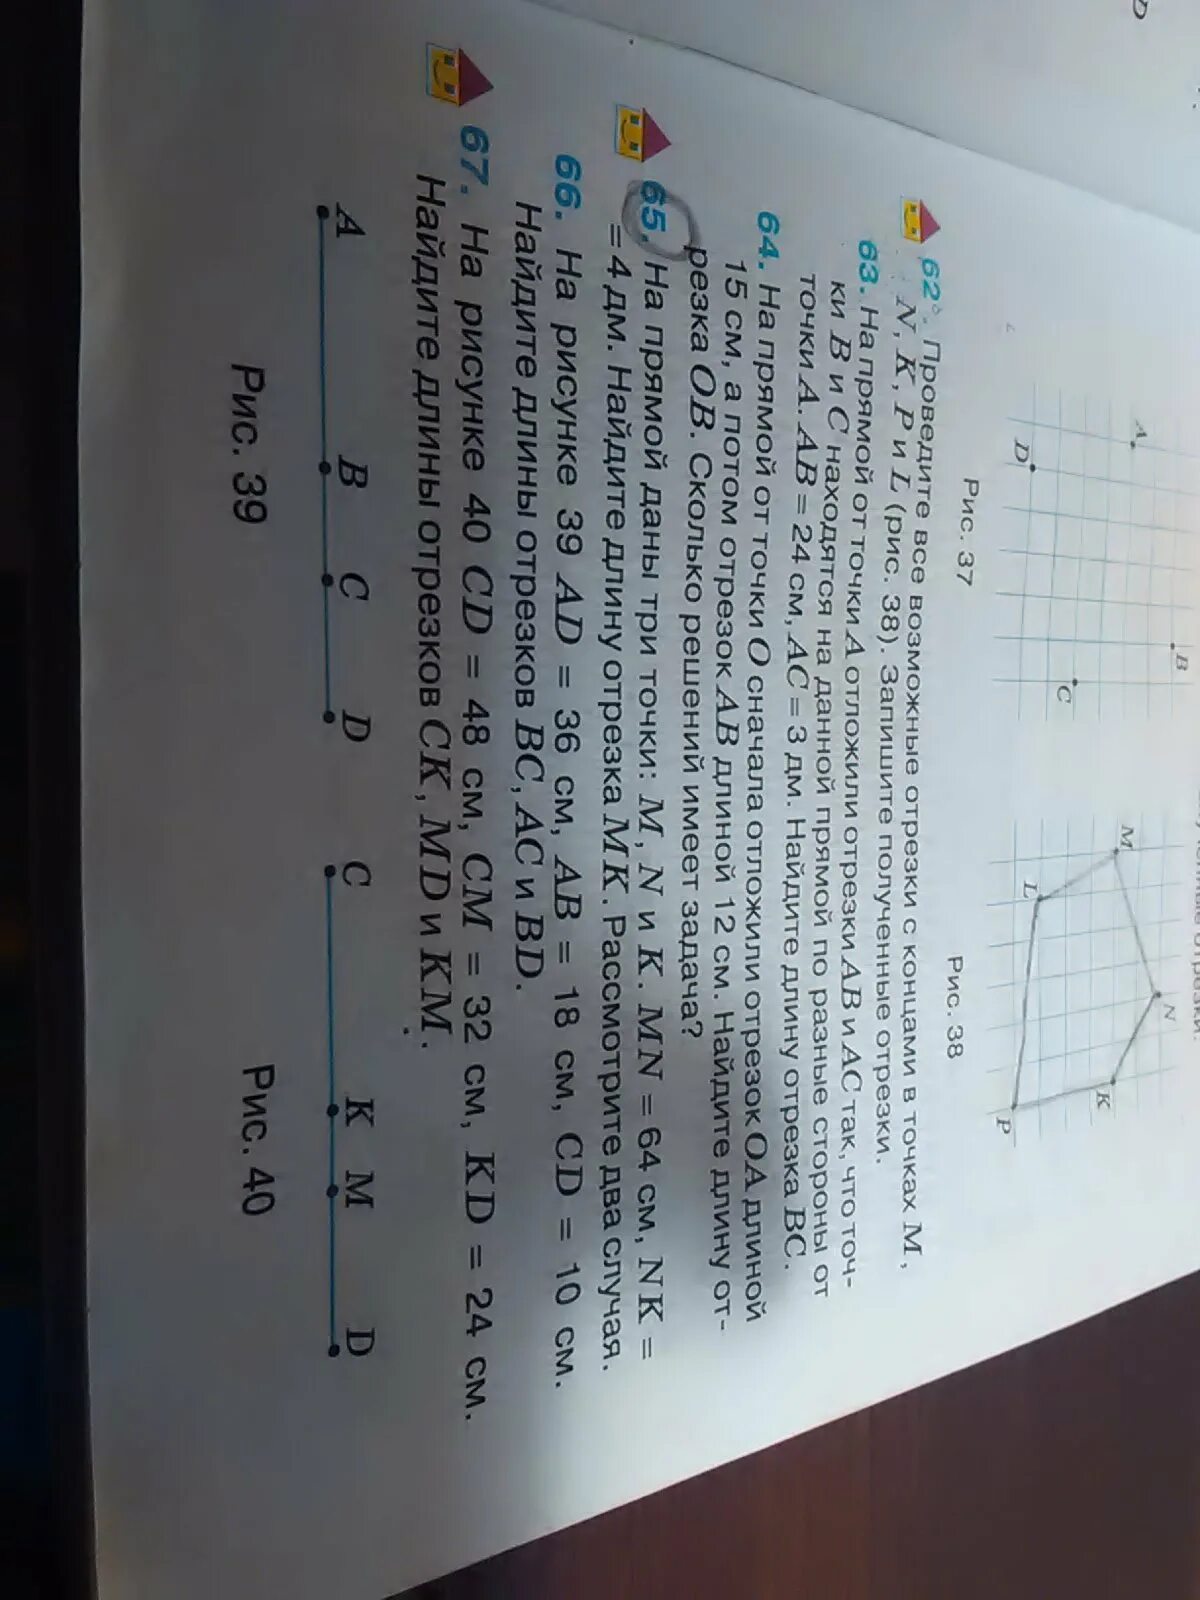 D
A
B
D
C
Рис. 37
M
N
L
K
P
Рис. 38
62°. Проведите все возможные отрезки с концами в точках M,
N, K, P и L (рис. 38). Запишите полученные отрезки.
63. На прямой от точки A отложили отрезки AB и AC так, что точ-
ки B и C находятся на данной прямой по разные стороны от
точки A. AB = 24 см, AC = 3 дм. Найдите длину отрезка BC.
64. На прямой от точки O сначала отложили отрезок OA длиной
15 см, а потом отрезок AB длиной 12 см. Найдите длину от-
резка OB. Сколько решений имеет задача?
65. На прямой даны три точки: M, N и K. MN = 64 см, NK =
= 4 дм. Найдите длину отрезка MK. Рассмотрите два случая.
66. На рисунке 39 AD = 36 см, AB = 18 см, CD = 10 см.
Найдите длины отрезков BC, AC и BD.
67. На рисунке 40 CD = 48 см, CM = 32 см, KD = 24 см.
Найдите длины отрезков CK, MD и KM.
A B C D
Рис. 39
C K M D
Рис. 40